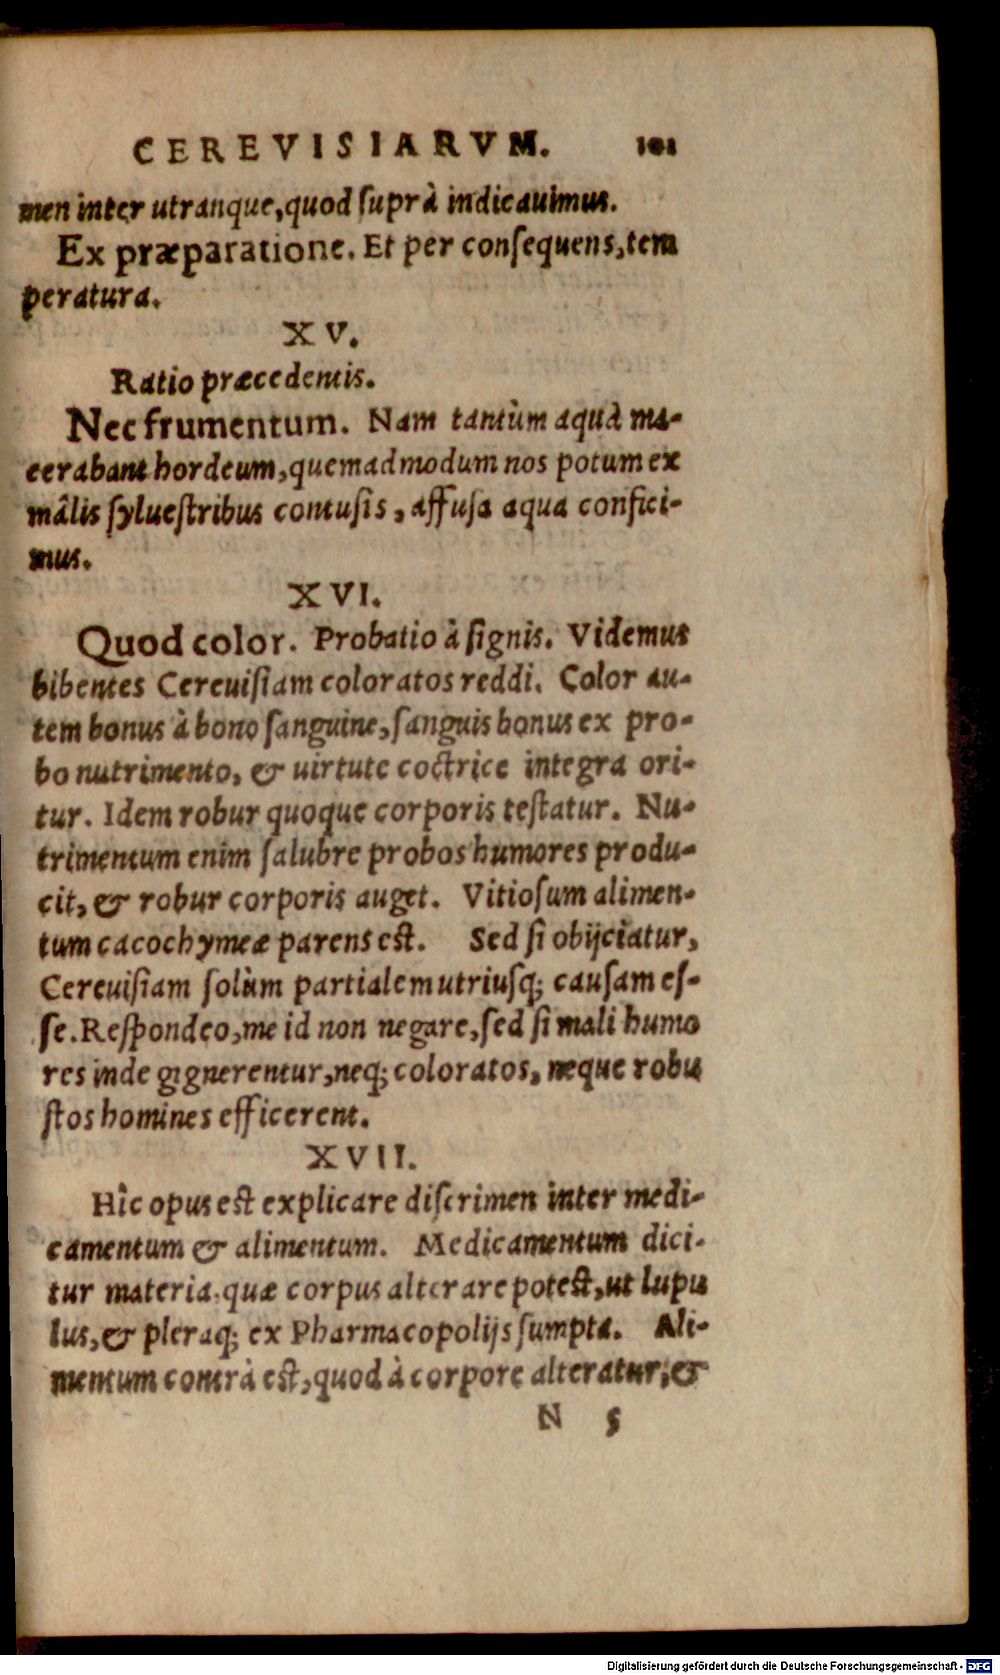 CEREVISIARVM. 101
men inter utranque, quod suprà indicauimus.
Ex præparatione. Et per consequens, tem
peratura.
XV.
Ratio præcedentis.
Nec frumentum. Nam tantùm aquà ma-
cerabant hordeum, quemadmodum nos potum ex
mâlis syluestribus contusis, affusa aqua confici-
mus.
XVI.
Quod color. Probatio à signis. Videmus
bibentes Cereuisiam coloratos reddi. Color au-
tem bonus à bono sanguine, sanguis bonus ex pro-
bo nutrimento, & uirtute coctrice integra ori-
tur. Idem robur quoque corporis testatur. Nu-
trimentum enim salubre probos humores produ-
cit, & robur corporis auget. Vitiosum alimen-
tum cacochymeæ parens est. Sed si obijciatur,
Cereuisiam solùm partialem utriusq; causam es-
se. Respondeo, me id non negare, sed si mali humo
res inde gignerentur, neq; coloratos, neque robu
stos homines efficerent.
XVII.
Hîc opus est explicare discrimen inter medi-
camentum & alimentum. Medicamentum dici-
tur materia, quæ corpus alterare potest, ut lupu
lus, & pleraq; ex Pharmacopolijs sumpta. Ali-
mentum contrà est, quod à corpore alteratur, &
N 5
Digitalisierung gefördert durch die Deutsche Forschungsgemeinschaft - DFG